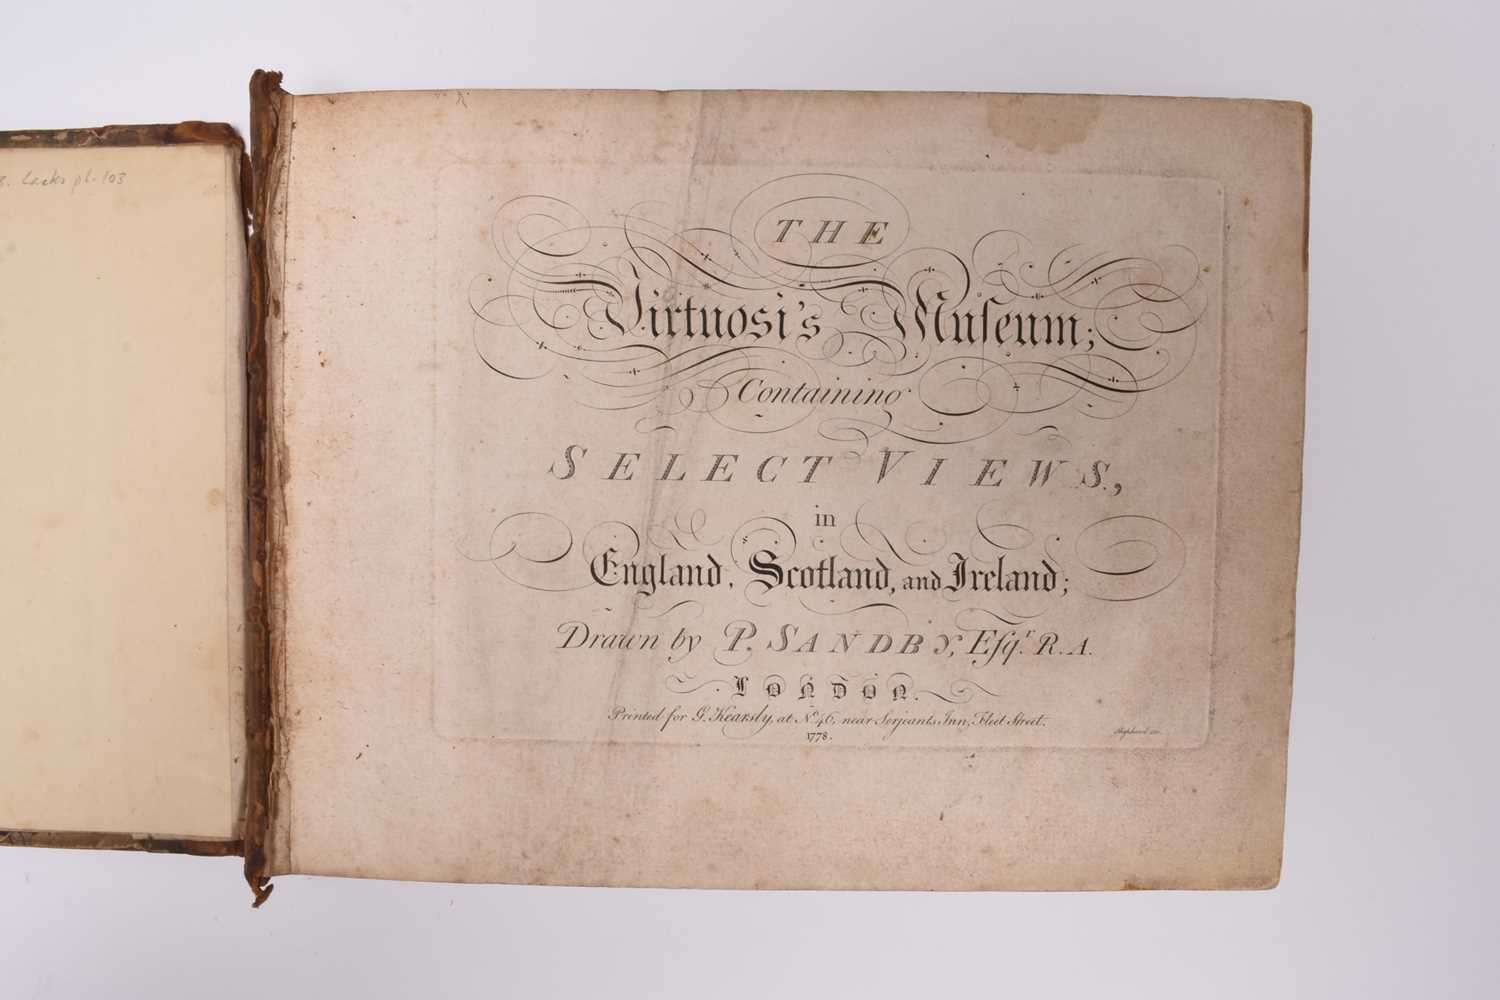 Lacks pl. 103
THE
Virtuosi's Muſeum;
Containing
SELECT VIEWS,
in
England, Scotland, and Ireland;
Drawn by P. SANDBY, Eſqr. R.A.
LONDON.
Printed for G. Kearsly, at No. 46, near Serjeants Inn, Fleet Street.
1778.